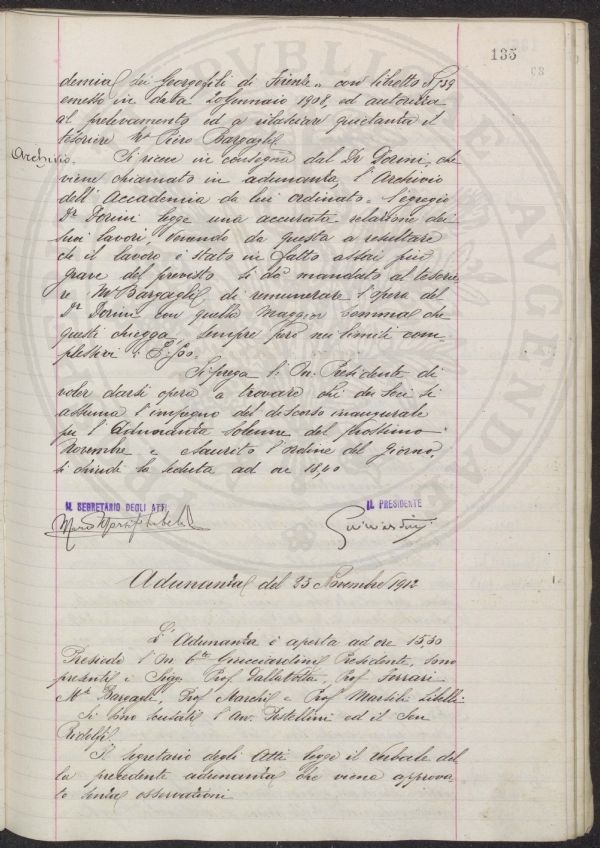 135
93
demia dei Georgofili di Firenze" con libretto N 739
emesso in data 20 Gennaio 1908, ed autorizza
al prelevamento ed a rilasciare quietanza il
tesoriere Mse Piero Bargagli.
Archivio. Si riceve in consegna dal Dr Dorini, che
viene chiamato in adunanza, l'Archivio
dell'Accademia da lui ordinato. L'egregio
Dr Dorini legge una accurata relazione dei
suoi lavori, venendo da questa a resultare
che il lavoro è stato in fatto assai più
grave del previsto si dà mandato al tesorie
re Mse Bargagli di remunerare l'opera del
Dr Dorini con quella maggior somma che
questi chiegga, sempre però nei limiti com-
plessivi di
Si prega l'On. Presidente di
voler darsi opera a trovare chi dei Soci si
assuma l'impegno del discorso inaugurale
per l'Adunanza solenne del prossimo
Novembre e esaurito l'ordine del giorno,
si chiude la seduta ad ore 18,40
IL SEGRETARIO DEGLI ATTI
IL PRESIDENTE
Guicciardini
Adunanza del 23 Novembre 1912
L'Adunanza è aperta ad ore 15,30
Presiede l'On. Cte Guicciardini Presidente, sono
presenti i Sigg Prof Valvassori, Prof Ferrari
Mse Bargagli, Prof Marchi e Prof Marsili Libelli
Si sono scusati l'Avv. Pestellini ed il Sen
Ridolfi.
Il segretario degli Atti legge il verbale del
la precedente adunanza che viene approva
to senza osservazioni